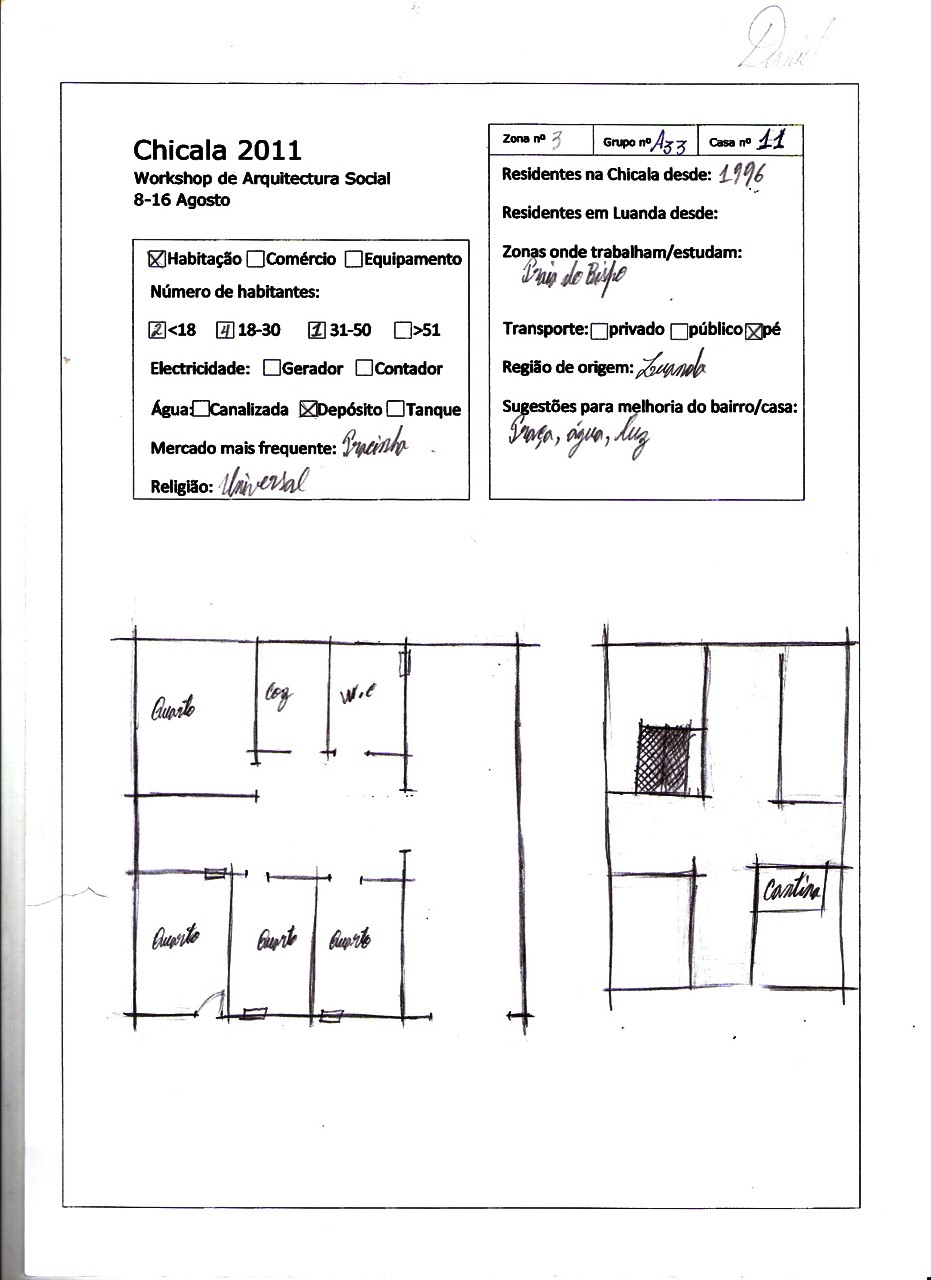 Daniel
Chicala 2011
Workshop de Arquitectura Social
8-16 Agosto
Zona nº 3
Grupo nº A33
Casa nº 11
Residentes na Chicala desde: 1996
Residentes em Luanda desde:
Zonas onde trabalham/estudam:
Praia do Bispo
Transporte: privado público pé
Região de origem: Luanda
Sugestões para melhoria do bairro/casa:
Praça, água, luz
Habitação Comércio Equipamento
Número de habitantes:
2 <18 4 18-30 1 31-50 >51
Electricidade: Gerador Contador
Água: Canalizada Depósito Tanque
Mercado mais frequente: Pracinha
Religião: Universal
Quarto
Coz
W.C
Quarto
Quarto
Quarto
Cantina